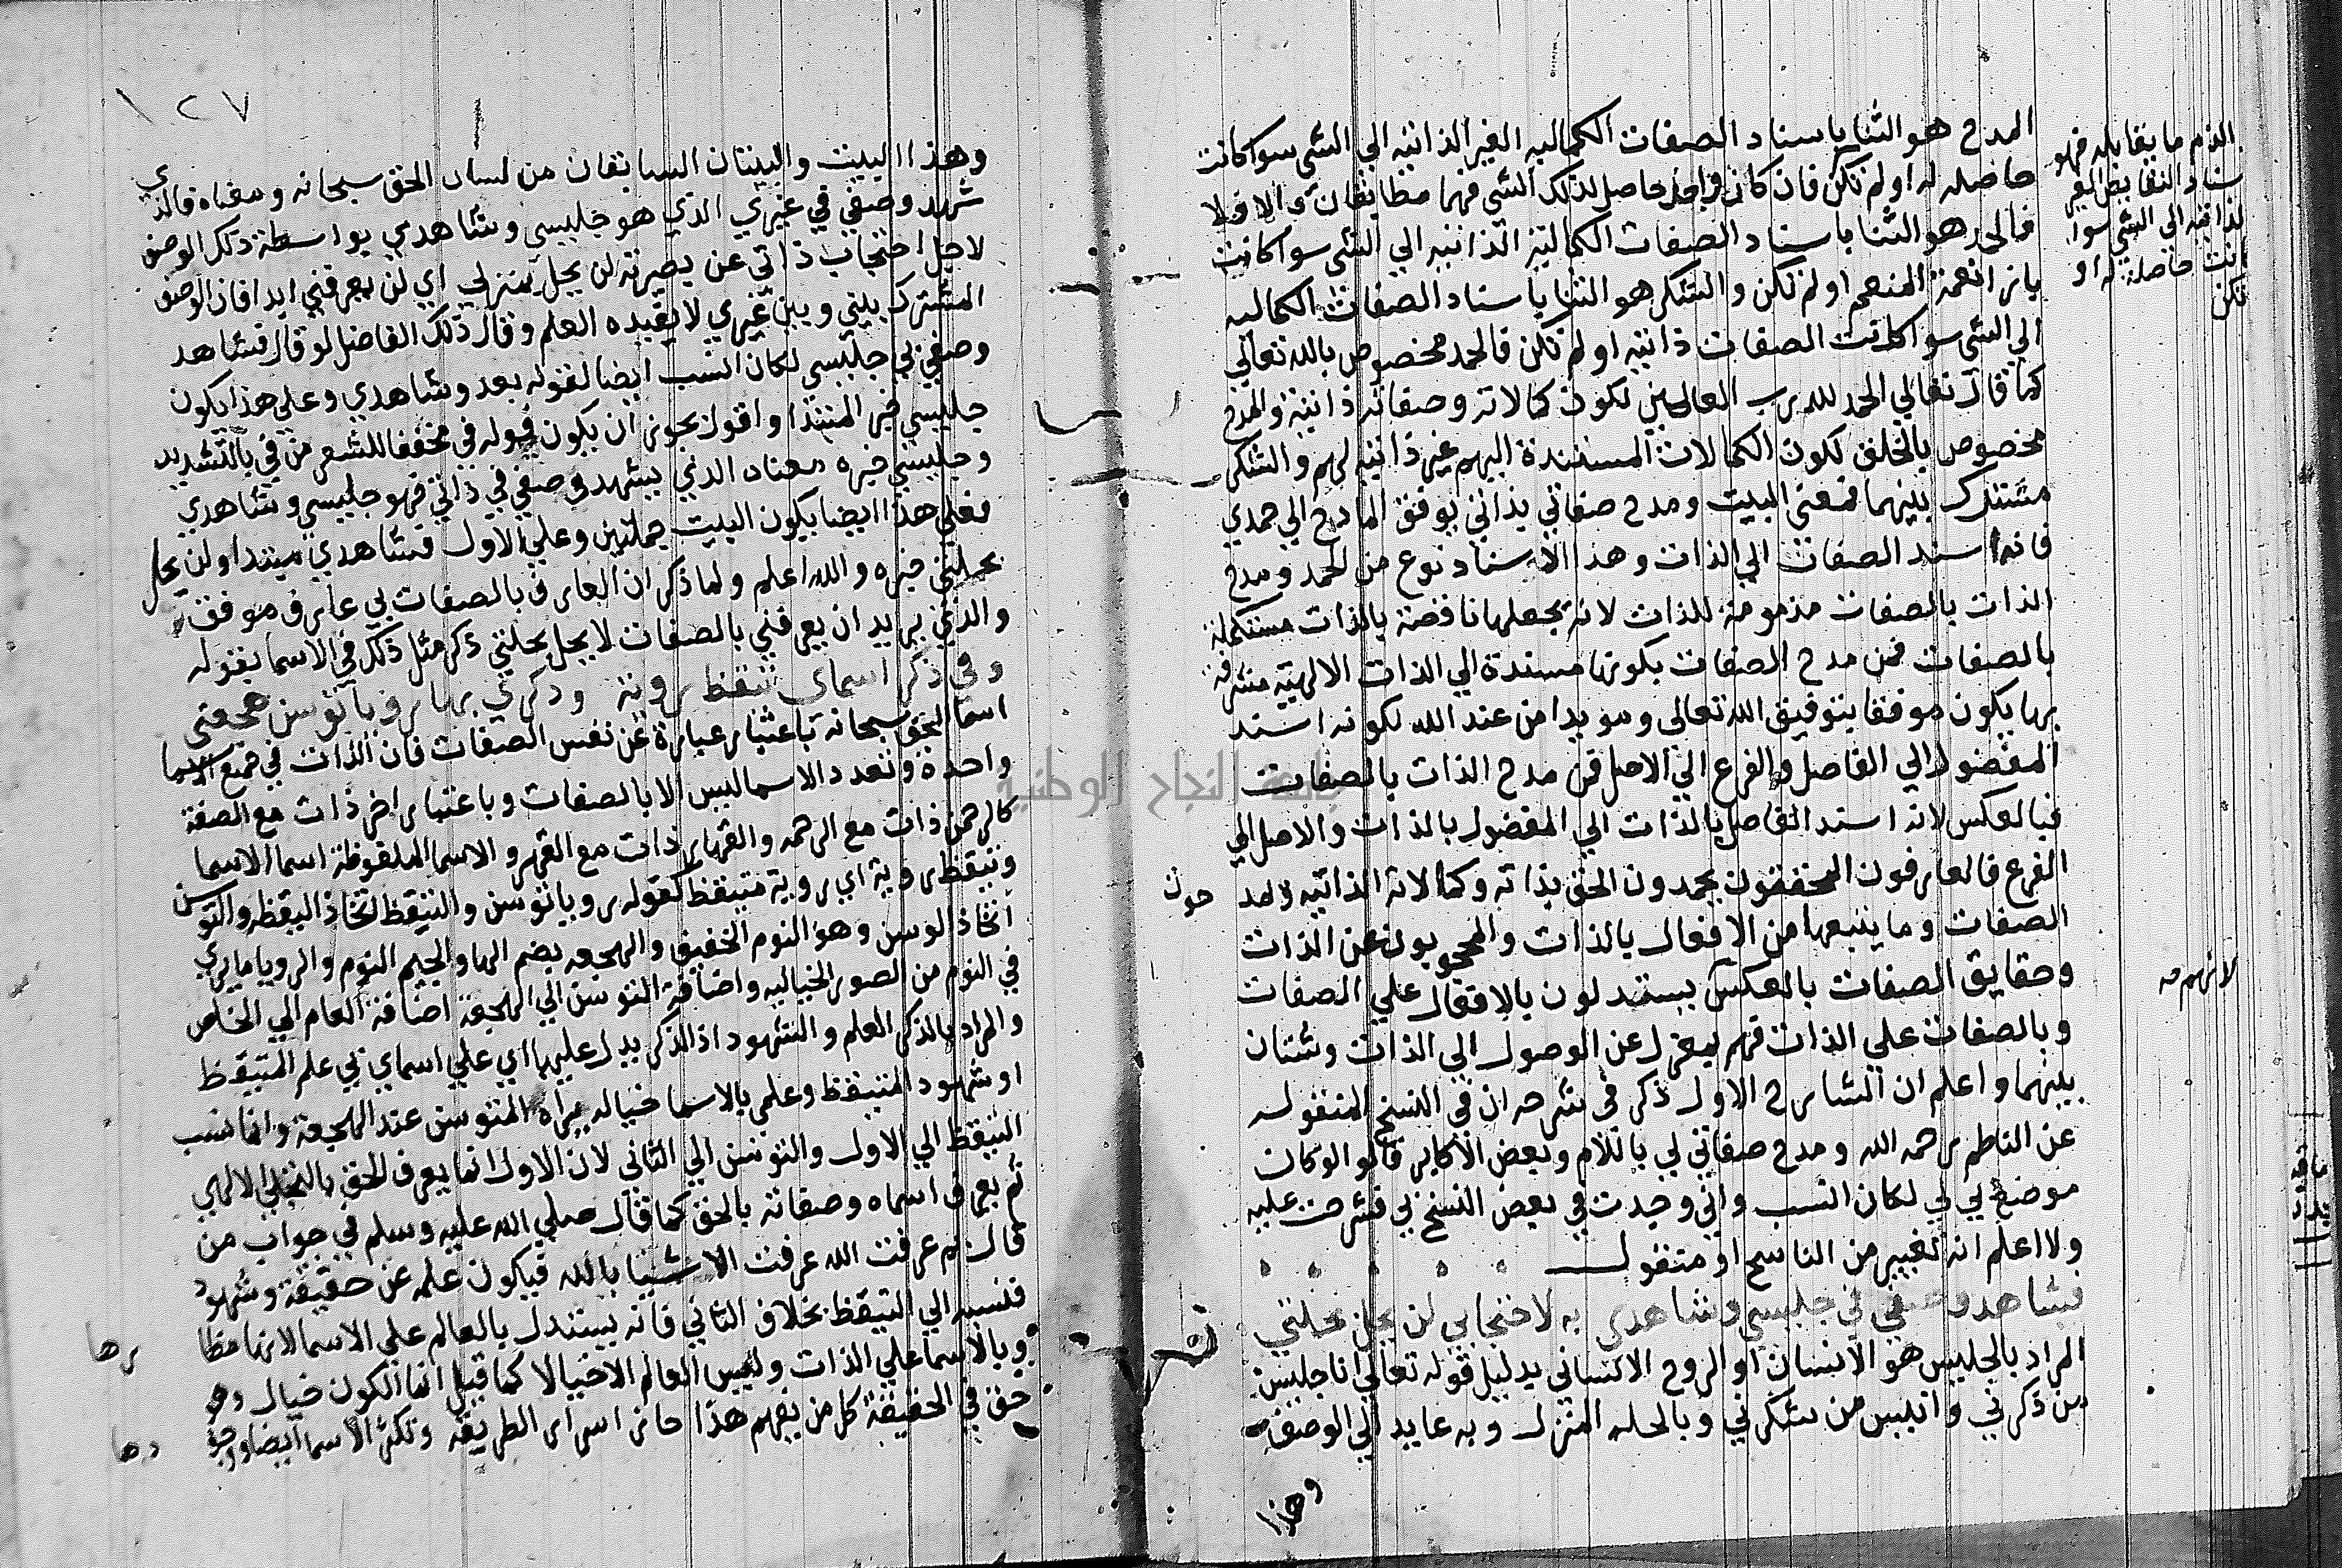 المدح هو الثنا باسناد الصفات الكماليه الغير الذاتيه الي الشي سوا كانت
حاصله له او لم تكن فان كان حاصل لذلك الشي فهما مطابقان والا فلا
فالحمد هو الثنا باسناد الصفات الكمالية الذاتيه الي الشي سوا كانت
بازا نعمة المنعم او لم تكن والشكر هو الثنا باسناد الصفات الكماليه
الي الشي سوا كانت الصفات ذاتيه او لم تكن فالحمد مخصوص بالله تعالي
كما قال تعالي الحمد لله رب العالمين لكون كمالاته وصفاته ذاتية والمدح
مخصوص بالخلق لكون الكمالات المستندة اليهم غير ذاتيه لهم والشكر
مشترك بينهما فمعني البيت ومدح صفاتي بذاتي يوفق المادح الي حمدي
فانه اسند الصفات الي الذات وهذا الاسناد نوع من الحمد ومدح
الذات بالصفات مذمومة للذات لانه يجعلها ناقصة بالذات مستكملة
بالصفات فمن مدح الصفات بكونها مسندة الي الذات الالهية متشرفة
بها يكون موفقا بتوفيق الله تعالي ومويدا من عند الله لكونه اسند
المفضول الي الفاضل والفرع الي الاصل ومن مدح الذات بالصفات
فبالعكس لانه اسند الفاصل بالذات الي المفضول بالذات والاصل الي
الفرع فالعارفون المحققون يحمدون الحق بذاته وكمالاته الذاتيه ويمد
حون
الصفات وما يتبعها من الافعال بالذات والمحجوبون عن الذات
وحقايق الصفات بالعكس يستدلون بالافعال علي الصفات
وبالصفات علي الذات فهم بمعزل عن الوصول الي الذات وشتان
بينهما واعلم ان الشارح الاول ذكر في شرحه ان في النسخ المنقوله
عن الناظم رحمه الله ومدح صفاتي لي باللام وبعض الاكابر قالو الو كان
موضع لي بي لكان انسب واني وجدت في بعض النسخ بي فشرحت عليه
ولا اعلم انه تغيير من الناسخ او منقول
فشاهد وصفي في جليسي وشاهدي به لاحتجابي لن يحل بحلتي
المراد بالجليس هو الانسان او الروح الانساني بدليل قوله تعالي انا جليس
من ذكرني وانيس من شكرني وبالحله المنزل وبه عايد الي الوصف
وهذا
الذم ما يقابله فهو
سناد النقايص الغير
لذاتيه الي الشي سوا
كانت حاصلة له او
تكن
١٢٧
وهذا البيت والبيتان السابقان من لسان الحق سبحانه ومعناه فالذي
شهد وصفي في غيري الذي هو جليسي وشاهدي بواسطة ذلك الوصف
لاجل احتجاب ذاتي عن بصيرته لن يحل بمنزلي اي لن يعرفني ابدا فان الوصف
المشترك بيني وبين غيري لا يفيده العلم وقال ذلك الفاضل لو قال فشاهد
وصفي بي جليسي لكان انسب ايضا لقوله بعد وشاهدي وعلي هذا يكون
جليسي خبر المبتدا واقول يجوز ان يكون قوله في مخففا للشعر من في بالتشديد
وجليسي خبره معناه الذي يشهد وصفي في ذاتي فهو جليسي وشاهدي
فعلي هذا ايضا يكون البيت جملتين وعلي الاول فشاهدي مبتدا ولن يحل
بحلتي خبره والله اعلم ولما ذكر ان العارف بالصفات بي عارف موفق
والذي يريد ان يعرفني بالصفات لا يحل بحلتي ذكر مثل ذلك في الاسما بقوله
وفي ذكر اسماي تيقظ روية وذكري بها رويا توسن هجعتي
اسما الحق سبحانه باعتبار عبارة عن نفس الصفات فان الذات في جميع الاسما
واحدة وتعدد الاسما ليس الا بالصفات وباعتبار اخر ذات مع الصفة
كالرحمن ذات مع الرحمه والقهار ذات مع القهر والاسما الملفوظة اسما الاسما
وتيقظ روية اي روية متيقظ كقوله رويا توسن والتيقظ اتخاذ اليقظه والتوسن
اتخاذ الوسن وهو النوم الخفيف والهجعه بضم الها والجيم النوم والرويا ما يري
في النوم من الصور الخياليه واضافة التوسن الي الهجعة اضافة العام الي الخاص
والمراد بالذكر العلم والشهود اذ الذكر يدل عليهما اي علي اسماي بي علم المتيقظ
او شهود المتيقظ وعلمي بالاسما خيال يراه المتوسن عند الهجعة وانما نسب
التيقظ الي الاول والتوسن الي الثاني لان الاول انما يعرف الحق بالتجلي الالهي
ثم يعرف اسماه وصفاته بالحق كما قال صلي الله عليه وسلم في جواب من
قال بم عرفت الله عرفت الاشيا بالله فيكون علمه عن حقيقة وشهود
فنسبه الي التيقظ بخلاف الثاني فانه يستدل بالعالم علي الاسما لانها مظا
هرها
وبالاسما علي الذات وليس العالم الا خيالا كما قيل انما الكون خيال وهو
حق في الحقيقة كل من يفهم هذا حاز اسرار الطريقه وتكثر الاسما ايضا
جامعة النجاح الوطنية